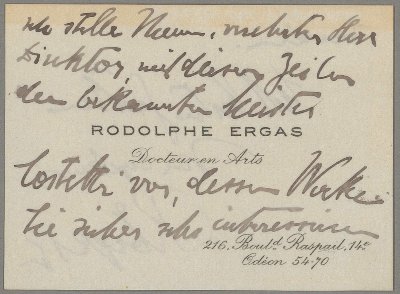 stelle Ihnen, verehrter Herr
Direktor, mit diesen Zeilen
den bekannten Meister
RODOLPHE ERGAS
Docteur en Arts
Costetti vor, dessen Werke
Sie sicher sehr interessieren
216, Boul<sup>d</sup> Raspail, 14<sup>e</sup>
Odéon 54-70